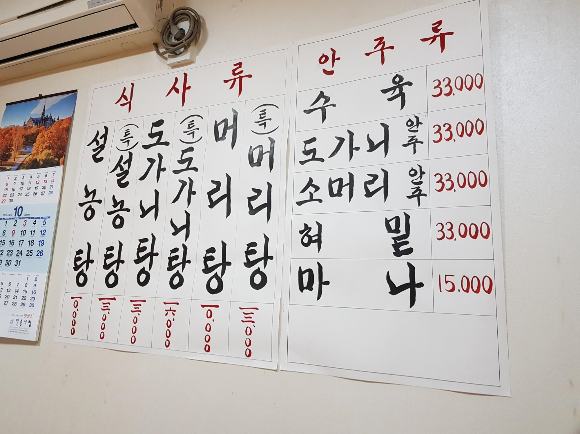 식사류
설농탕 一0,000
(특)설농탕 一三,000
도가니탕 一三,000
(특)도가니탕 一六,000
머리탕 一0,000
(특)머리탕 一三,000
안주류
수육 33,000
도가니 안주 33,000
소머리 안주 33,000
혀밑 33,000
마나 15.000
10